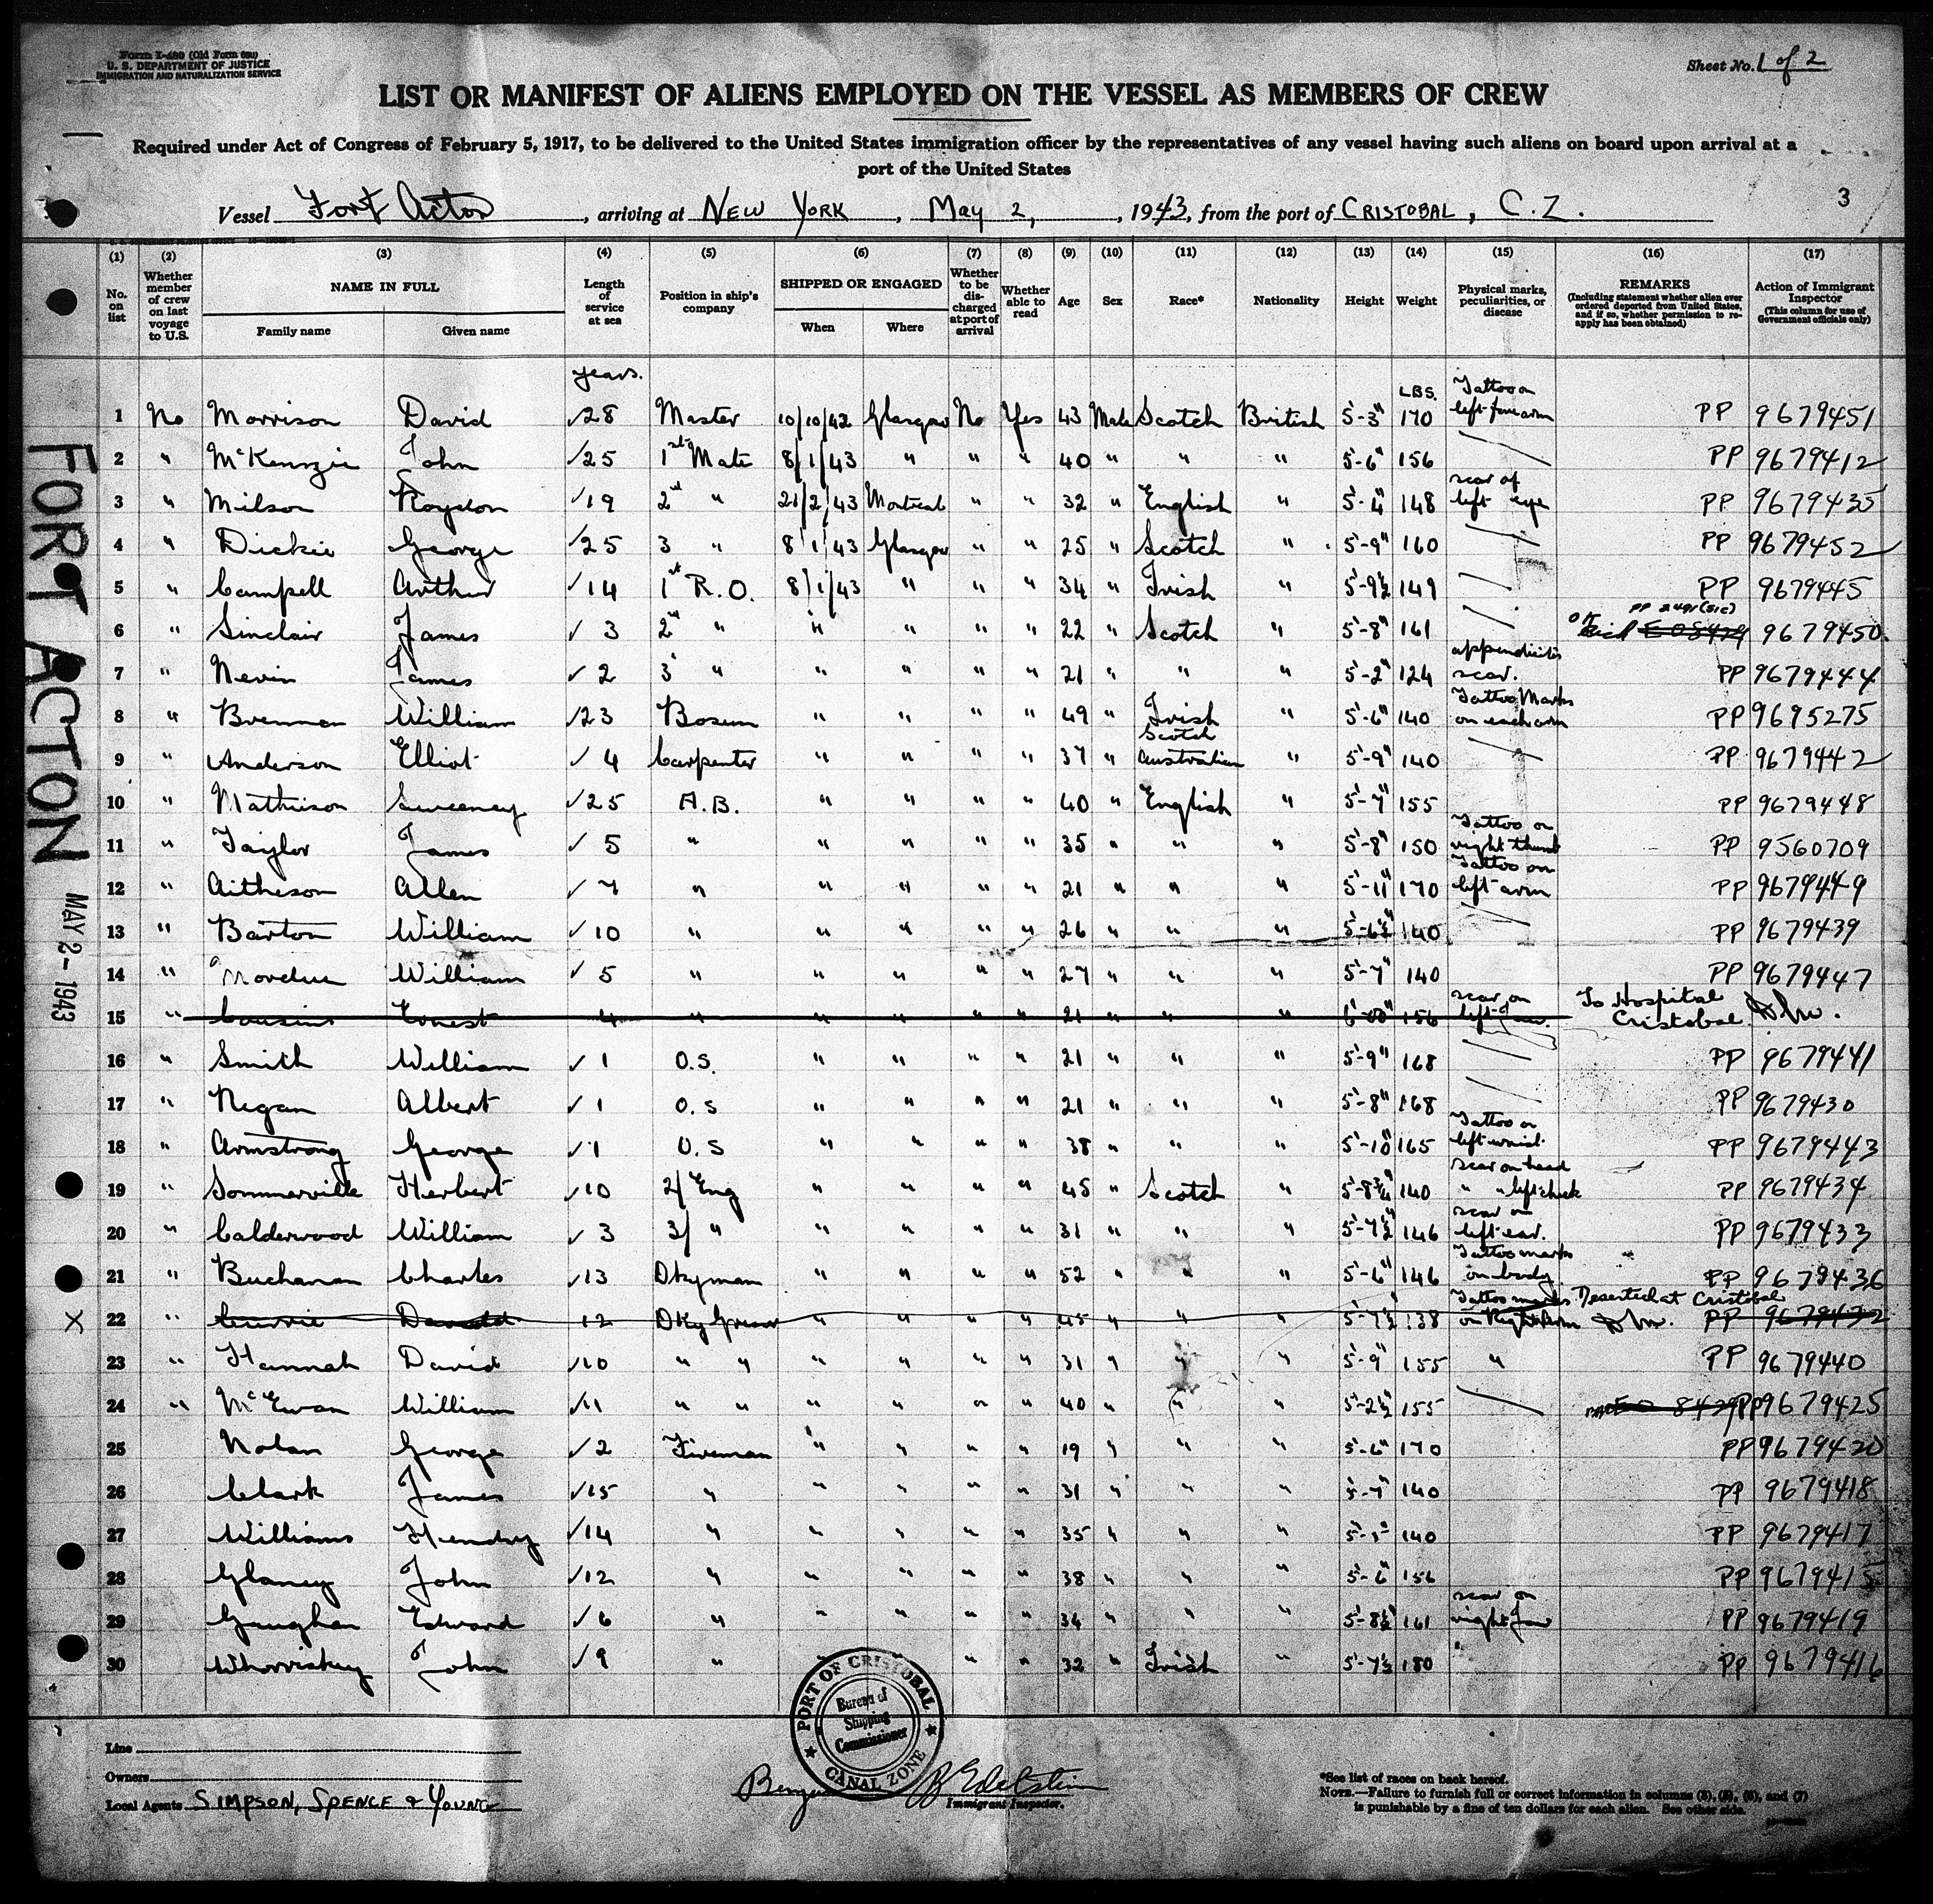 Form I-480 (Old Form 680)
U. S. DEPARTMENT OF JUSTICE
IMMIGRATION AND NATURALIZATION SERVICE
Sheet No. 1 of 2
LIST OR MANIFEST OF ALIENS EMPLOYED ON THE VESSEL AS MEMBERS OF CREW
Required under Act of Congress of February 5, 1917, to be delivered to the United States immigration officer by the representatives of any vessel having such aliens on board upon arrival at a
port of the United States
3
Vessel Fort Acton, arriving at NEW YORK, May 2, 1943, from the port of CRISTOBAL, C.Z.
(1) (2) (3) (4) (5) (6) (7) (8) (9) (10) (11) (12) (13) (14) (15) (16) (17)
No. on list
Whether member of crew on last voyage to U.S.
NAME IN FULL
Family name Given name
Length of service at sea
Position in ship's company
SHIPPED OR ENGAGED
When Where
Whether to be discharged at port of arrival
Whether able to read
Age Sex Race* Nationality Height Weight
Physical marks, peculiarities, or disease
REMARKS
(Including statement whether alien ever ordered deported from United States, and if so, whether permission to reapply has been obtained)
Action of Immigrant Inspector
(This column for use of Government officials only)
years. LBS.
1 No Morrison David √28 Master 10/10/42 Glasgow No Yes 43 Male Scotch British 5'-3" 170 Tattoo on left forearm PP 9679451
2 " McKenzie John √25 1st Mate 8/1/43 " " " 40 " " " 5'-6" 156 PP 9679412
3 " Milson Roydon √19 2nd " 21/2/43 Montreal " " 32 " English " 5'-4" 148 scar of left eye PP 9679435
4 " Dickie George √25 3 " 8/1/43 Glasgow " " 25 " Scotch " 5'-9" 160 PP 9679452
5 " Campell Arthur √14 1st R.O. 8/1/43 " " " 34 " Irish " 5'-9½ 149 PP 9679445
6 " Sinclair James √ 3 2nd " " " " " 22 " Scotch " 5'-8" 161 PP 9679450
7 " Nevin James √ 2 3 " " " " " 21 " " " 5'-2" 124 appendicitis scar. PP 9679444
8 " Brennan William √23 Bosun " " " " 49 " Irish " 5'-6" 140 Tattoo Marks on each arm PP 9695275
9 " Anderson Elliot √ 4 Carpenter " " " " 37 " Scotch Australian " 5'-9" 140 PP 9679442
10 " Mathieson Sweeney √25 A.B. " " " " 40 " English " 5'-7" 155 PP 9679448
11 " Taylor James √ 5 " " " " " 35 " " " 5'-8" 150 Tattoo on right thumb PP 9560709
12 " Aitheson Allen √ 7 " " " " " 21 " " " 5'-11" 170 Tattoo on left arm PP 9679449
13 " Barton William √10 " " " " " 26 " " " 5'-6½" 140 PP 9679439
14 " William √ 5 " " " " " 27 " " " 5'-7" 140 PP 9679447
15 " Cousins Ernest 4 " " " " " 21 " " " 6'-00" 156 scar on left jaw. To Hospital Cristobal
16 " Smith William √ 1 O.S. " " " " 21 " " " 5'-9" 168 PP 9679441
17 " Regan Albert √ 1 O.S " " " " 21 " " " 5'-8" 168 PP 9679430
18 " Armstrong George √1 O.S " " " " 38 " " " 5'-10" 165 Tattoo on left wrist. PP 9679443
19 " Sommerville Herbert √10 2/ Eng " " " " 45 " Scotch " 5'-8¾" 140 scar on head " " left cheek PP 9679434
20 " Calderwood William √ 3 3/ " " " " " 31 " " " 5'-7½" 146 scar on left ear. PP 9679433
21 " Buchanan Charles √13 Dkyman " " " " 52 " " " 5'-6" 146 Tattoo marks on body. PP 9679436
22 " Currie David 12 Dky Greaser " " " " 45 " " " 5'-7½ 138 Tattoo marks on Right arm Deserted at Cristobal PP 9679432
23 " Hannah David √10 " " " " " " 31 " " " 5'-9" 155 " PP 9679440
24 " McEwan William √1 " " " " " " 40 " " " 5'-2½" 155 PP 9679425
25 Nolan George √2 Fireman " " " " 19 " " " 5'-6" 170 PP 9679420
26 Clark James √15 " " " " " 31 " " " 5'-7" 140 PP 9679418
27 Williams Hendry √14 " " " " " 35 " " " 140 PP 9679417
28 Glancy John √12 " " " " " 38 " " " 5'-6" 156 PP 9679415
29 Gaughan Edward √6 " " " " " 34 " " " 5'-8½" 161 scar on right jaw PP 9679419
30 Whorriskey John √9 " " " 32 " Irish " 5'-7½ 180 PP 9679416
FORT ACTON
MAY 2 - 1943
X
PORT OF CRISTOBAL
Bureau of
Shipping
Commissioner
CANAL ZONE
Line
Owners
Local Agents SIMPSON, SPENCE & YOUNG
B Edelstein
Immigrant Inspector.
*See list of races on back hereof.
NOTE.—Failure to furnish full or correct information in columns (3), (5), (6), and (7)
is punishable by a fine of ten dollars for each alien. See other side.